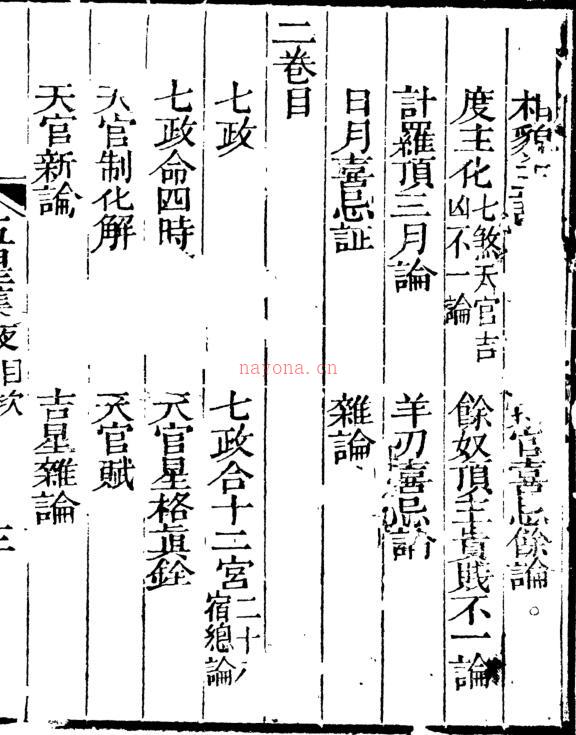 相貌
官喜忌餘論。
度主化七煞天官吉凶不一論
餘奴頂主貴賎不一論
計羅頂三月論
羊刃喜忌論
日月喜忌証
雜論
二卷目
七政
七政合十二宮二十八宿總論
七政命四時
天官星格眞銓
天官制化解
天官賦
天官新論
吉星雜論
五星集
目次
三
nayona.cn